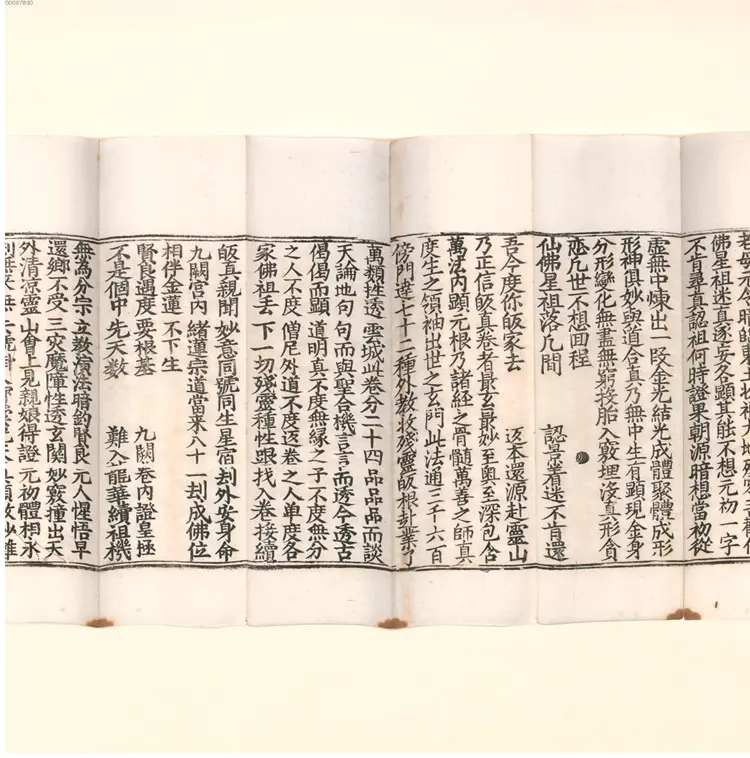 00057830
佛星祖迷真逐妄各顯其能不想元初一字
不肯尋真認祖何時證果朝源暗想當初從
虛無中煉出一叚金光結光成體聚體成形
形神俱妙與道合真乃無中生有顕現金身
分形變化無盡無窮投胎入竅埋没真形貪
恋凡世不想囬程
仙佛星祖落凡間 認景着迷不肯還
吾今度你皈家去 返本還源赴靈山
乃正信皈真卷者最玄最妙至奥至深包含
萬法内顕元根乃諸経之骨髓萬善之師真
度生之領袖出世之玄門此法通三千六百
傍門達七十二種外教收殘靈皈根赴業了
萬類性透雲城此卷分二十四品品品而談
天論地句句而與聖合機言言而透今透古
偈偈而顕道明真不度無縁之子不度無分
之人不度僧尼外道不度返卷之人单度各
家佛祖丢下一切殘靈種性跟找入卷接續
皈真親聞妙意同號同生星宿刦外安身命
九関宫内緒蓮宗道當來八十一刦成佛位
相伴金蓮不下生
賢良遇度要根基 九関卷内證皇極
不是個中先天数 難入龍華續祖機
無為分宗立教演法暗釣賢良元人惺悟早
還鄉不受三灾魔障性透玄関妙竅撞出天
外清凉靈山會上見親娘得證元初體相永